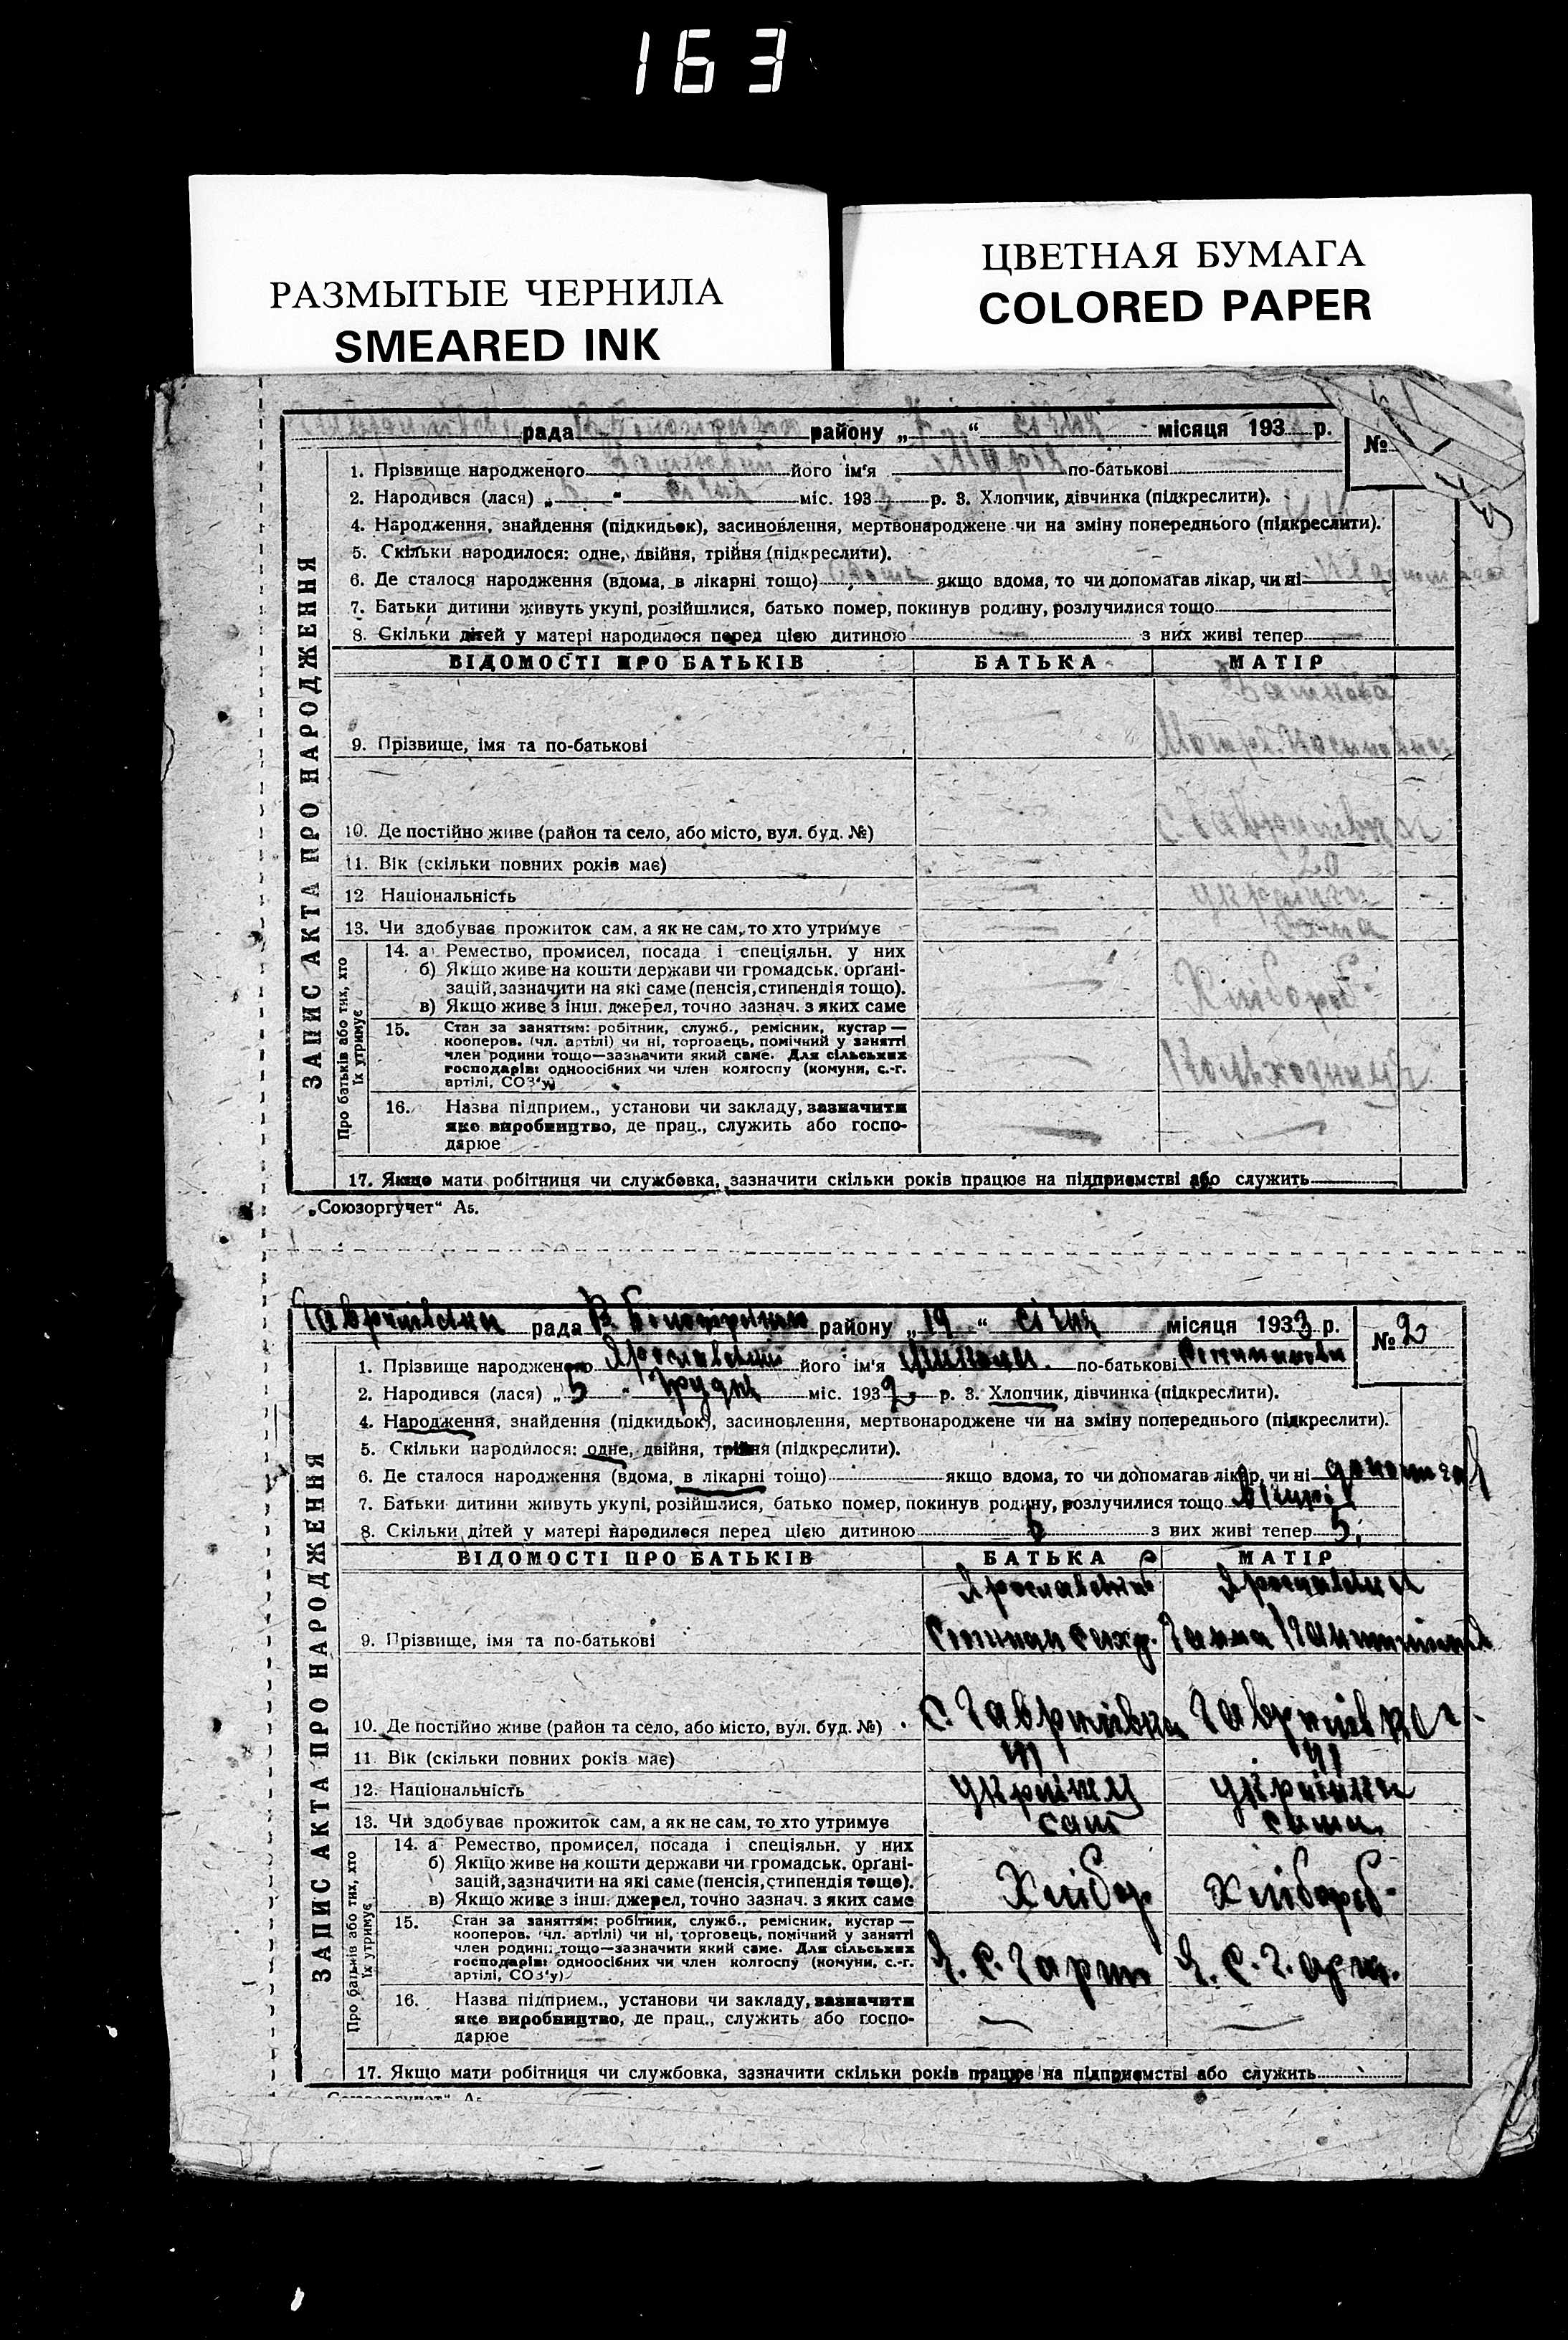 163
РАЗМЫТЫЕ ЧЕРНИЛА
SMEARED INK
ЦВЕТНАЯ БУМАГА
COLORED PAPER
рада району „ “ січня місяця 193 р.
№
1. Прізвище народженого його ім'я Марія по-батькові
2. Народився (лася) „ “ січня міс. 1933 р. 3. Хлопчик, дівчинка (підкреслити).
4. Народження, знайдення (підкидьок), засиновлення, мертвонароджене чи на зміну попереднього (підкреслити).
5. Скільки народилося: одне, двійня, трійня (підкреслити).
6. Де сталося народження (вдома, в лікарні тощо) вдома якщо вдома, то чи допомагав лікар, чи ні
7. Батьки дитини живуть укупі, розійшлися, батько помер, покинув родину, розлучилися тощо
8. Скільки дітей у матері народилося перед цією дитиною — з них живі тепер —
ЗАПИС АКТА ПРО НАРОДЖЕННЯ
ВІДОМОСТІ ПРО БАТЬКІВ БАТЬКА МАТІР
9. Прізвище, імя та по-батькові
10. Де постійно живе (район та село, або місто, вул. буд. №) с. Гаврилівка
11. Вік (скільки повних років має) — 20
12 Національність — українка
13. Чи здобуває прожиток сам, а як не сам, то хто утримує — сама
Про батьків або тих, хто їх утримує
14. а) Ремество, промисел, посада і спеціяльн. у них
б) Якщо живе на кошти держави чи громадськ. орґані-
зацій, зазначити на які саме (пенсія, стипендія тощо).
в) Якщо живе з інш. джерел, точно зазнач. з яких саме
Хлібороб
15. Стан за заняттям: робітник, служб., ремісник, кустар —
кооперов. (чл. артілі) чи ні, торговець, помічний у занятті
член родини тощо—зазначити який саме. Для сільських
господарів: одноосібних чи член колгоспу (комуни, с.-г.
артілі, СОЗ'у)
16. Назва підприєм., установи чи закладу, зазначити
яке виробництво, де прац., служить або госпо-
дарює
17. Якщо мати робітниця чи службовка, зазначити скільки років працює на підприємстві або служить
„Союзоргучет“ А5.
Гаврилівська рада району „19“ січня місяця 1933 р.
№ 2
1. Прізвище народженого Ярославський його ім'я по-батькові
2. Народився (лася) „5 “ грудня міс. 1932 р. 3. Хлопчик, дівчинка (підкреслити).
4. Народження, знайдення (підкидьок), засиновлення, мертвонароджене чи на зміну попереднього (підкреслити).
5. Скільки народилося: одне, двійня, трійня (підкреслити).
6. Де сталося народження (вдома, в лікарні тощо) якщо вдома, то чи допомагав лікар, чи ні допомагав
7. Батьки дитини живуть укупі, розійшлися, батько помер, покинув родину, розлучилися тощо
8. Скільки дітей у матері народилося перед цією дитиною 5 з них живі тепер 5,
ЗАПИС АКТА ПРО НАРОДЖЕННЯ
ВІДОМОСТІ ПРО БАТЬКІВ БАТЬКА МАТІР
Ярославський Ярославська
9. Прізвище, імя та по-батькові Ганна
10. Де постійно живе (район та село, або місто, вул. буд. №) с. Гаврилівка Гаврилівка
11. Вік (скільки повних років має) 41 41
12. Національність українец українка
13. Чи здобуває прожиток сам, а як не сам, то хто утримує сам сама
Про батьків або тих, хто їх утримує
14. а Ремество, промисел, посада і спеціяльн. у них
б) Якщо живе на кошти держави чи громадськ. орґані-
зацій, зазначити на які саме (пенсія, стипендія тоще).
в) Якщо живе з інш. джерел, точно зазнач. з яких саме
Хлібор Хлібороб
15. Стан за заняттям: робітник, служб., ремісник, кустар —
кооперов. (чл. артілі) чи ні, торговець, помічний у занятті
член родини тощо—зазначити який саме. Для сільських
господарів: одноосібних чи член колгоспу (комуни, с.-г.
артілі, СОЗ'у)
16. Назва підприєм., установи чи закладу, зазначити
яке виробництво, де прац., служить або госпо-
дарює
17. Якщо мати робітниця чи службовка, зазначити скільки років працює на підприємстві або служить
„Союзоргучет“ А5